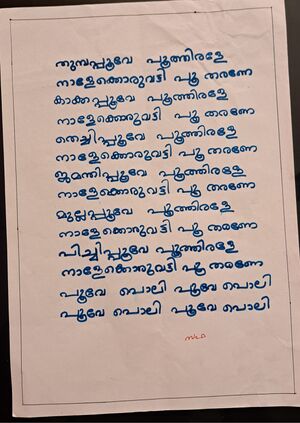 തുമ്പപ്പൂവേ പൂത്തിരളേ
നാളേക്കൊരുവട്ടി പൂ തരണേ
കാക്കപ്പൂവേ പൂത്തിരളേ
നാളേക്കൊരുവട്ടി പൂ തരണേ
തെച്ചിപ്പൂവേ പൂത്തിരളേ
നാളേക്കൊരുവട്ടി പൂ തരണേ
ജമന്തിപ്പൂവേ പൂത്തിരളേ
നാളേക്കൊരുവട്ടി പൂ തരണേ
മുല്ലപ്പൂവേ പൂത്തിരളേ
നാളേക്കൊരുവട്ടി പൂ തരണേ
പിച്ചിപ്പൂവേ പൂത്തിരളേ
നാളേക്കൊരുവട്ടി പൂ തരണേ
പൂവേ പൊലി പൂവേ പൊലി
പൂവേ പൊലി പൂവേ പൊലി